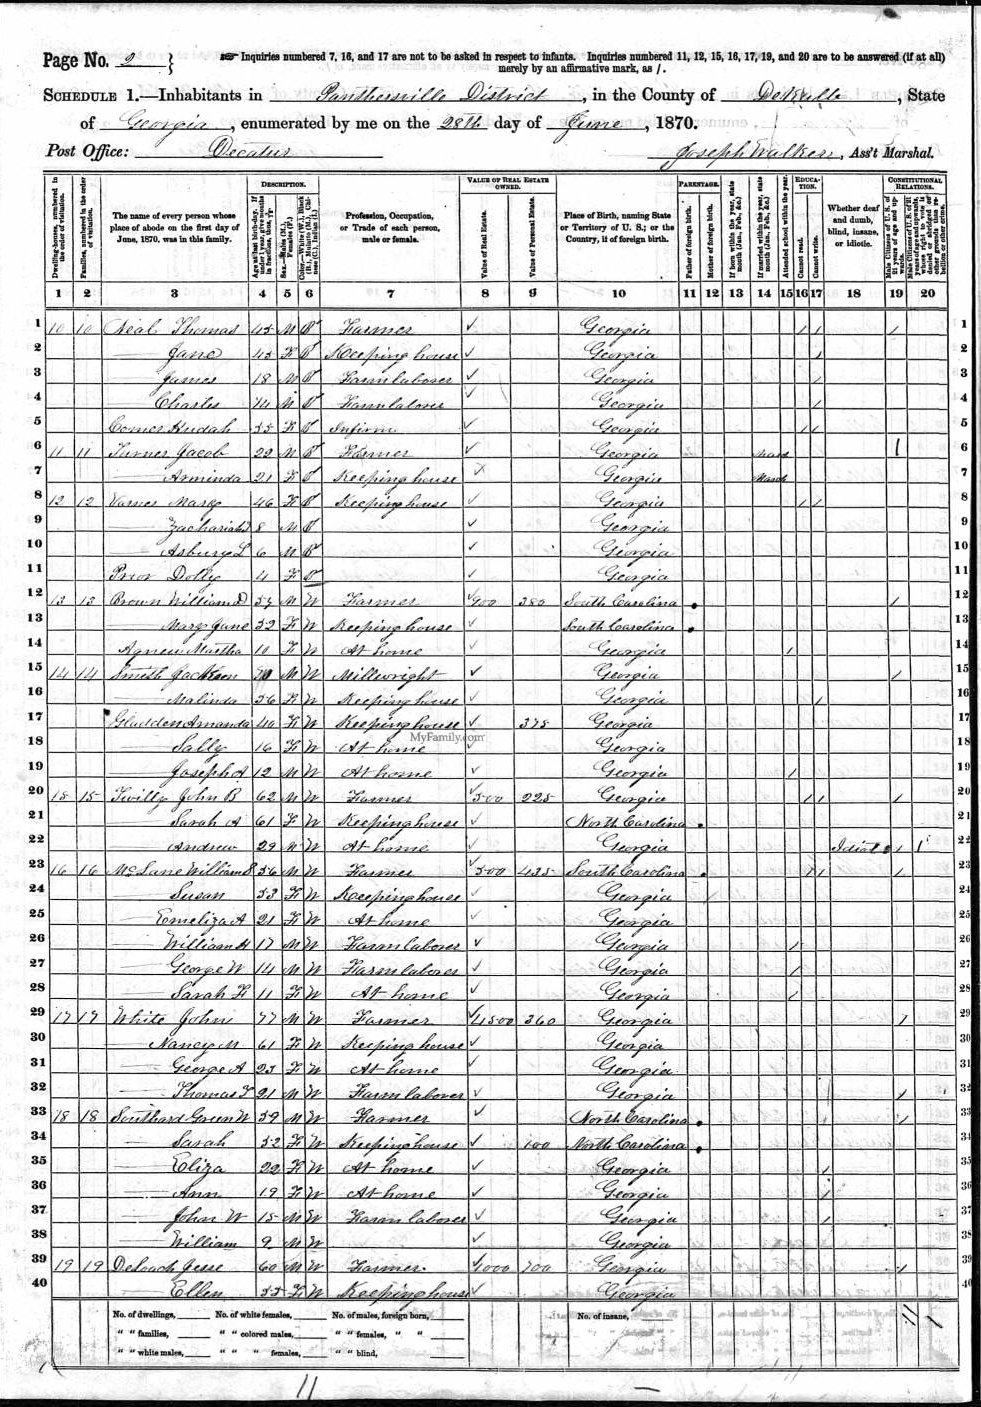 Page No. 2 } Inquiries numbered 7, 16, and 17 are not to be asked in respect to infants. Inquiries numbered 11, 12, 15, 16, 17, 19, and 20 are to be answered (if at all)
merely by an affirmative mark, as /.
SCHEDULE 1.—Inhabitants in Panthersville District, in the County of DeKalb, State
of Georgia, enumerated by me on the 28th day of June, 1870.
Post Office: Decatur Joseph Walker, Ass't Marshal.
DESCRIPTION. VALUE OF REAL ESTATE OWNED. PARENTAGE. EDUCATION. CONSTITUTIONAL RELATIONS.
Dwelling-houses, numbered in the order of visitation.
Families, numbered in the order of visitation.
The name of every person whose place of abode on the first day of June, 1870, was in this family.
Age at last birth-day. If under 1 year, give months in fractions, thus,
Sex.—Males (M.), Females (F.)
Color.—White (W.), Black (B.), Mulatto (M.), Chinese (C.), Indian (I.)
Profession, Occupation, or Trade of each person, male or female.
Value of Real Estate.
Value of Personal Estate.
Place of Birth, naming State or Territory of U. S.; or the Country, if of foreign birth.
Father of foreign birth.
Mother of foreign birth.
If born within the year, state month (Jan., Feb., &c.)
If married within the year, state month (Jan., Feb., &c.)
Attended school within the year.
Cannot read.
Cannot write.
Whether deaf and dumb, blind, insane, or idiotic.
Male Citizens of U. S. of 21 years of age and upwards.
1 2 3 4 5 6 7 8 9 10 11 12 13 14 15 16 17 18 19 20
1 10 10 Neal Thomas 45 M B Farmer Georgia / / / 1
2 — Jane 45 F B Keeping house Georgia / 2
3 — James 18 M B Farm laborer Georgia / 3
4 — Charles 14 M B Farm laborer Georgia / 4
5 Hudah 55 F B Infirm Georgia / / 5
6 11 11 Turner Jacob 22 M B Farmer Georgia March / 6
7 — Arminda 21 F B Keeping house Georgia March 7
8 12 12 Varner Mary 46 F B Keeping house Georgia / / 8
9 — Zachariah 8 M B Georgia 9
10 — Asbury L 6 M B Georgia 10
11 Prior Dolly 4 F B Georgia 11
12 13 13 Brown William D 57 M W Farmer 900 380 South Carolina / 12
13 — Mary Jane 52 F W Keeping house South Carolina 13
14 Agnew Martha 10 F W At home Georgia / 14
15 14 14 Smith Jackson M W Millwright Georgia / 15
16 — Malinda 56 F W Keeping house Georgia / 16
17 Gladden Amanda 40 F W Keeping house 375 Georgia 17
MyFamily.com
18 — Sally 16 F W At home Georgia 18
19 — Joseph A 12 M W At home Georgia / 19
20 15 15 Twilly John B 62 M W Farmer 500 225 Georgia / / / 20
21 — Sarah A 61 F W Keeping house North Carolina 21
22 — Andrew 29 M W At home Georgia Idiotic / / 22
23 16 16 McLane William S 56 M W Farmer 500 435 South Carolina / / / 23
24 — Susan 53 F W Keeping house Georgia 24
25 — Emeliza A 21 F W At home Georgia 25
26 — William H 17 M W Farm laborer Georgia / 26
27 — George W 14 M W Farm laborer Georgia / 27
28 — Sarah F 11 F W At home Georgia / 28
29 17 17 White John 77 M W Farmer 4500 360 Georgia / 29
30 — Nancy M 61 F W Keeping house Georgia 30
31 — George A 23 F W At home Georgia 31
32 — Thomas F 21 M W Farm laborer Georgia / 32
33 18 18 Southard Green W 59 M W Farmer North Carolina / 33
34 — Sarah 52 F W Keeping house 100 North Carolina 34
35 — Eliza 22 F W At home Georgia / 35
36 — Ann 19 F W At home Georgia / 36
37 — John W 15 M W Farm laborer Georgia / 37
38 — William 9 M W Georgia 38
39 19 19 Deloach Jesse 60 M W Farmer 1000 700 Georgia / 39
40 — Ellen 55 F W Keeping house Georgia 40
No. of dwellings, No. of white females, No. of males, foreign born, No. of insane,
" " families, " " colored males, " " females, " "
" " white males, " " " females, " " blind,
11